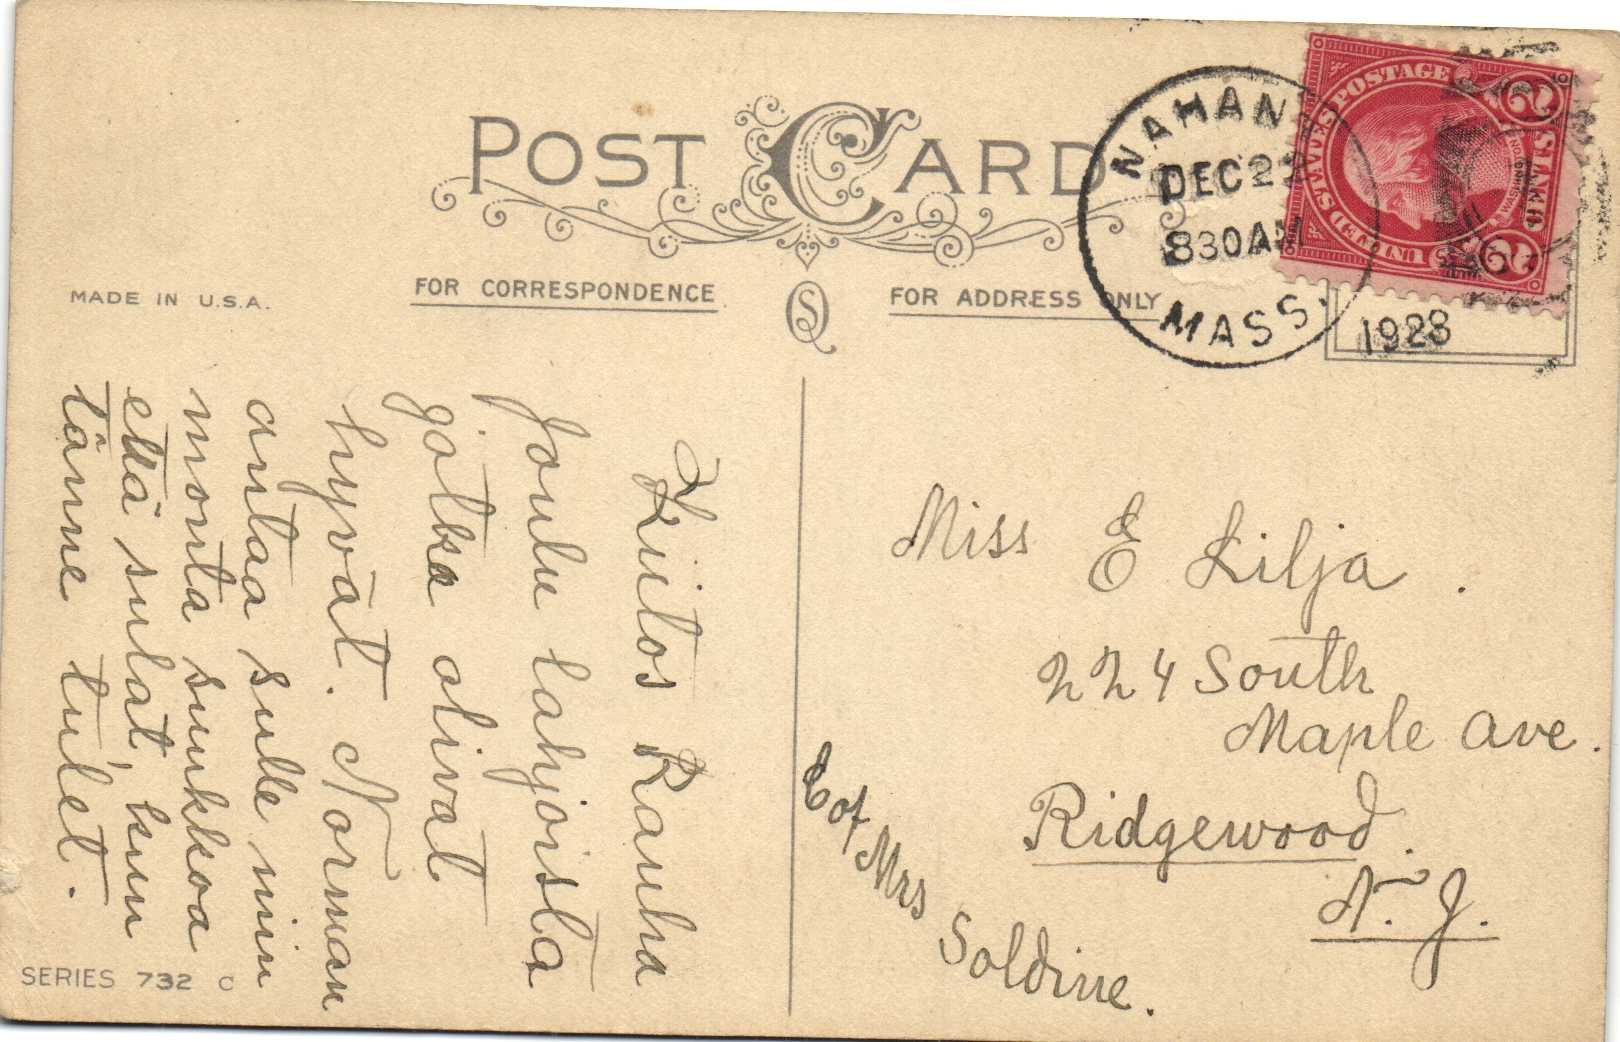 POST CARD
MADE IN U.S.A.
FOR CORRESPONDENCE
FOR ADDRESS ONLY
SQ
NAHANT
DEC 2
830AM
MASS.
1928
UNITED STATES POSTAGE
2 CENTS 2
Kiitos Rauha
Joulu lahjoista
jotka olivat
hyvät. Norman
antaa sulle niin
monta suukkoa
että sulat, kun
tänne tulet.
Miss E Lilja.
224 South
Maple Ave.
Ridgewood.
N. J.
C of Mrs Soldine.
SERIES 732 C